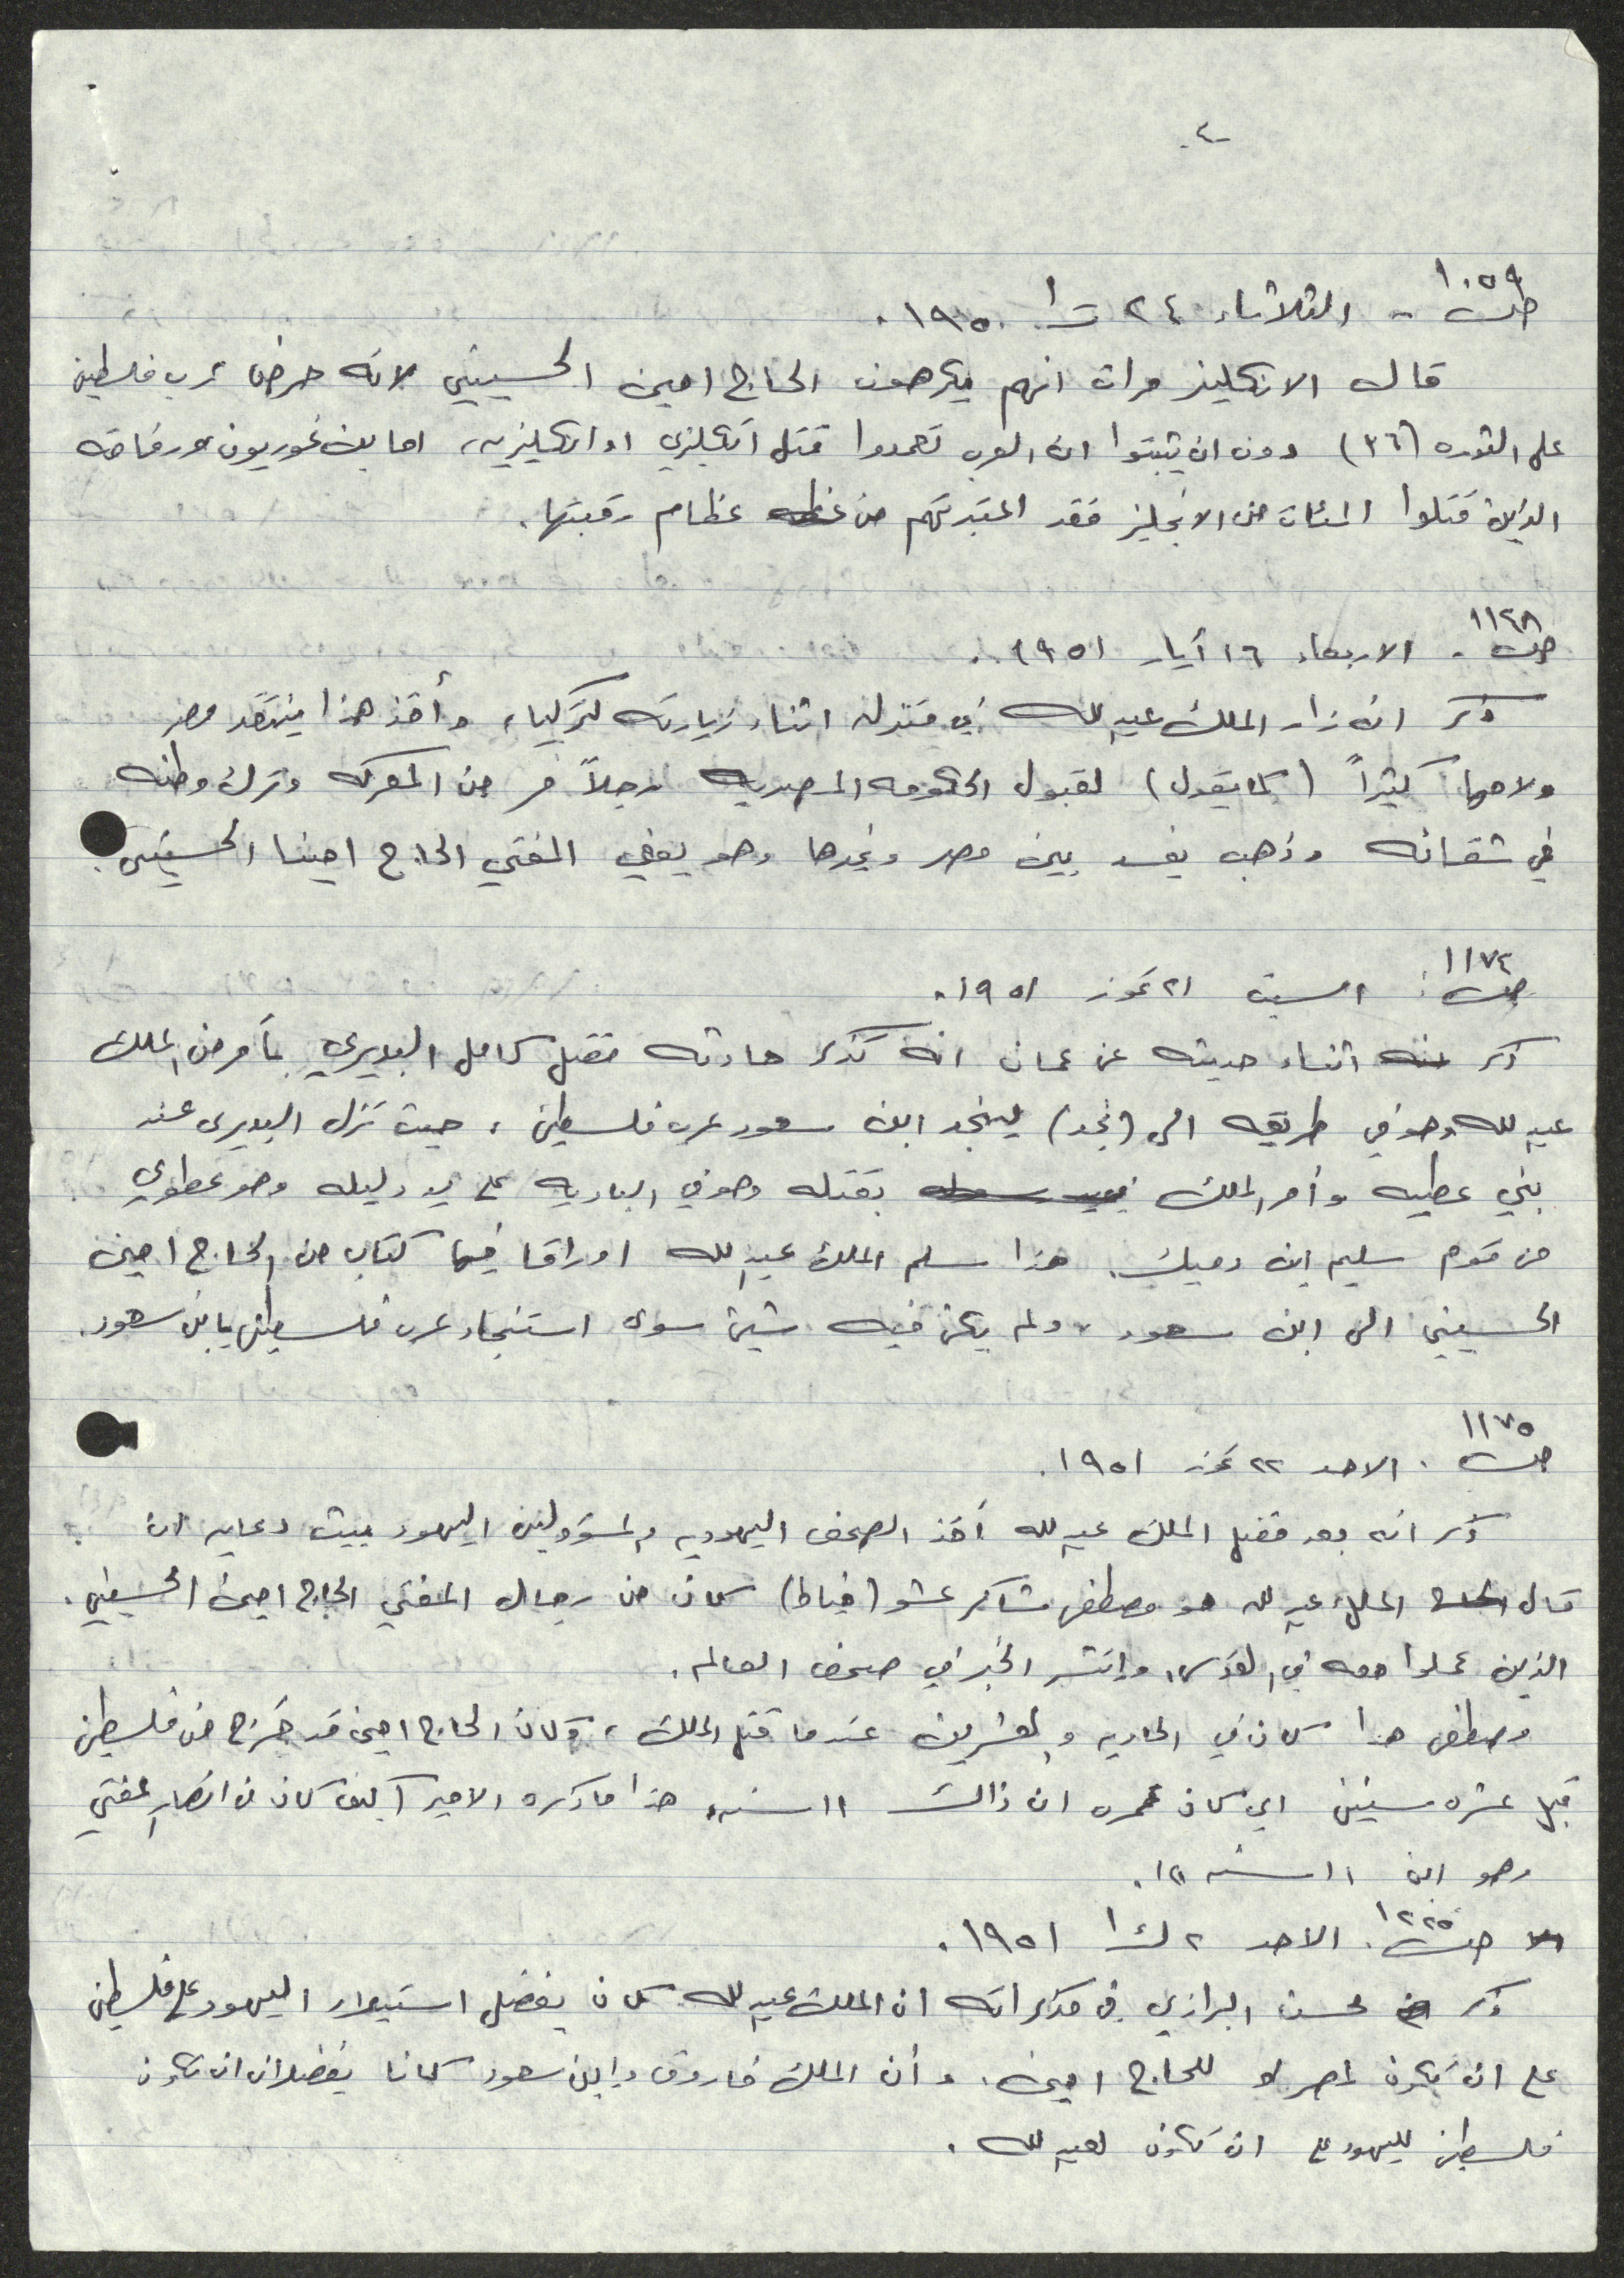 -٤-
ص ١٠٥٩ - الثلاثاء ٢٤ ت١ ١٩٥٠.
قال الانكليز مرات انهم يكرهون الحاج امين الحسيني لانه حرض عرب فلسطين
على الثوره (٣٦) دون ان يثبتوا ان العرب تعمدوا قتل انكليزي او انكليزيه، اما بن غوريون ورفاقه
الذين قتلوا المئات من الانجليز فقد اعتبرتهم من عظام رقبتها.
ص ١١٤٨. الاربعاء ١٦ أيار ١٩٥١.
ذكر انه زار الملك عبدالله في منزله اثناء زيارته لتركيا، وأخذ هذا ينتقد مصر
ولامها كثيراً (كما يقول) لقبول الحكومه المصريه رجلاً فر من المعركه وترك وطنه
في شقائه وذهب يفسد بين مصر وغيرها وهو يعني المفتي الحاج امينا الحسيني.
ص ١١٧٤: السبت ٢١ تموز ١٩٥١.
ذكر اثناء حديثه عن عمان انه تذكر حادثه مقتل كامل البديري بأمر من الملك
عبدالله وهو في طريقه الى (نجد) لينجد ابن سعود عرب فلسطين، حيث نزل البديري عند
بني عطيه وأمر الملك بقتله وهو في الباديه على يد دليله وهو عطوي
من قوم سليم ابن دميك. هذا سلم الملك عبدالله اوراقا فيها كتاب من الحاج امين
الحسيني الى ابن سعود، ولم يكن فيه شيئ سوى استنجاد عرب فلسطين بابن سعود.
ص ١١٧٥. الاحد ٢٢ تموز ١٩٥١.
ذكر انه بعد مقتل الملك عبدالله أخذ الصحف اليهوديه والمسؤولين اليهود ببيث دعايه ان
قال الملك عبدالله هو مصطفى شاكر عشو (خياط) كان من رجال المفتي الحاج امين الحسيني.
الذين عملوا معه في القدس، وانتشر الخبر في صحف العالم.
ومصطفى هذا كان في الحاديه والعشرين عندما قتل الملك، وكان الحاج امين قد خرج من فلسطين
قبل عشره سنين اي كان عمره ان ذالك ١١ سنه، هذا ما ذكره الامير اكيف كان من انصار المفتي
وهو ابن ١١ سنه !!.
ص ١٢٢٥. الاحد ٢ ك١ ١٩٥١.
ذكر محسن البرازي في مذكراته ان الملك عبدالله كان يفضل استيلاء اليهود على فلسطين
على ان تكون لمصر او للحاج امين. وأن الملك فاروق وابن سعود كانا يفضلان ان تكون
فلسطين لليهود على ان تكون لعبدالله.